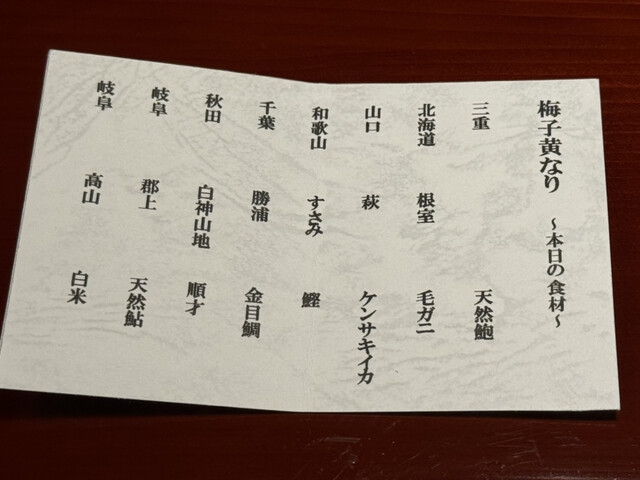 梅子黄なり ～本日の食材～
三重 天然鮑
北海道 根室 毛ガニ
山口 萩 ケンサキイカ
和歌山 すさみ 鰹
千葉 勝浦 金目鯛
秋田 白神山地 順才
岐阜 郡上 天然鮎
岐阜 高山 白米